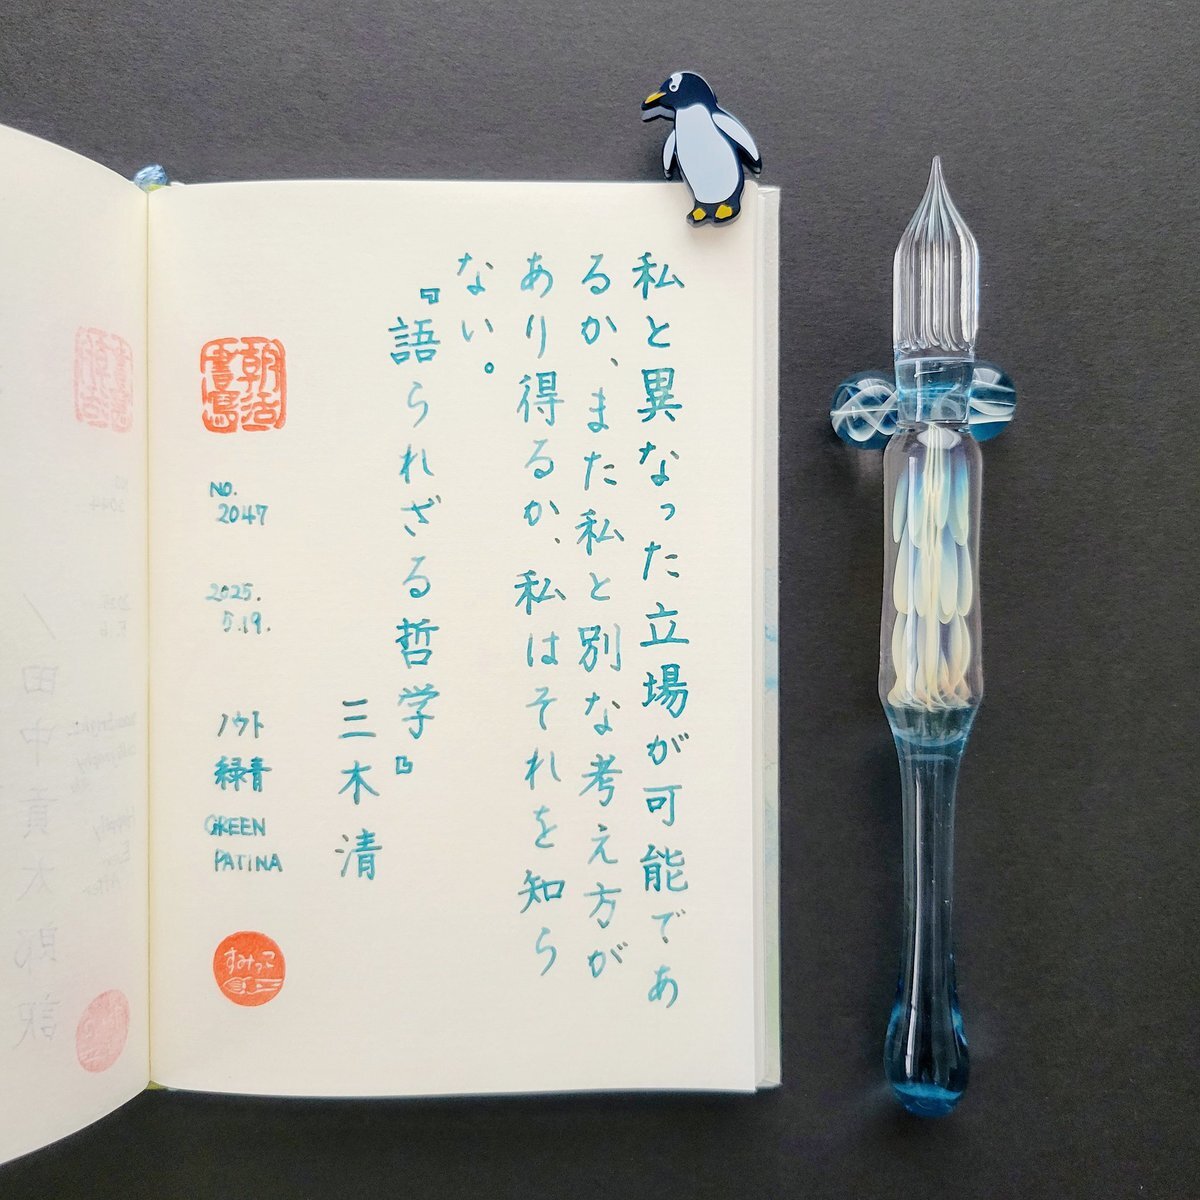 私と異なった立場が可能であ
るか、また私と別な考え方が
あり得るか、私はそれを知ら
ない。
『語られざる哲学』
三木清
朝活
書写
NO.
2047
2025.
5.19.
ノウト
緑青
GREEN
PATINA
すみっこ
田中貢太郎訳